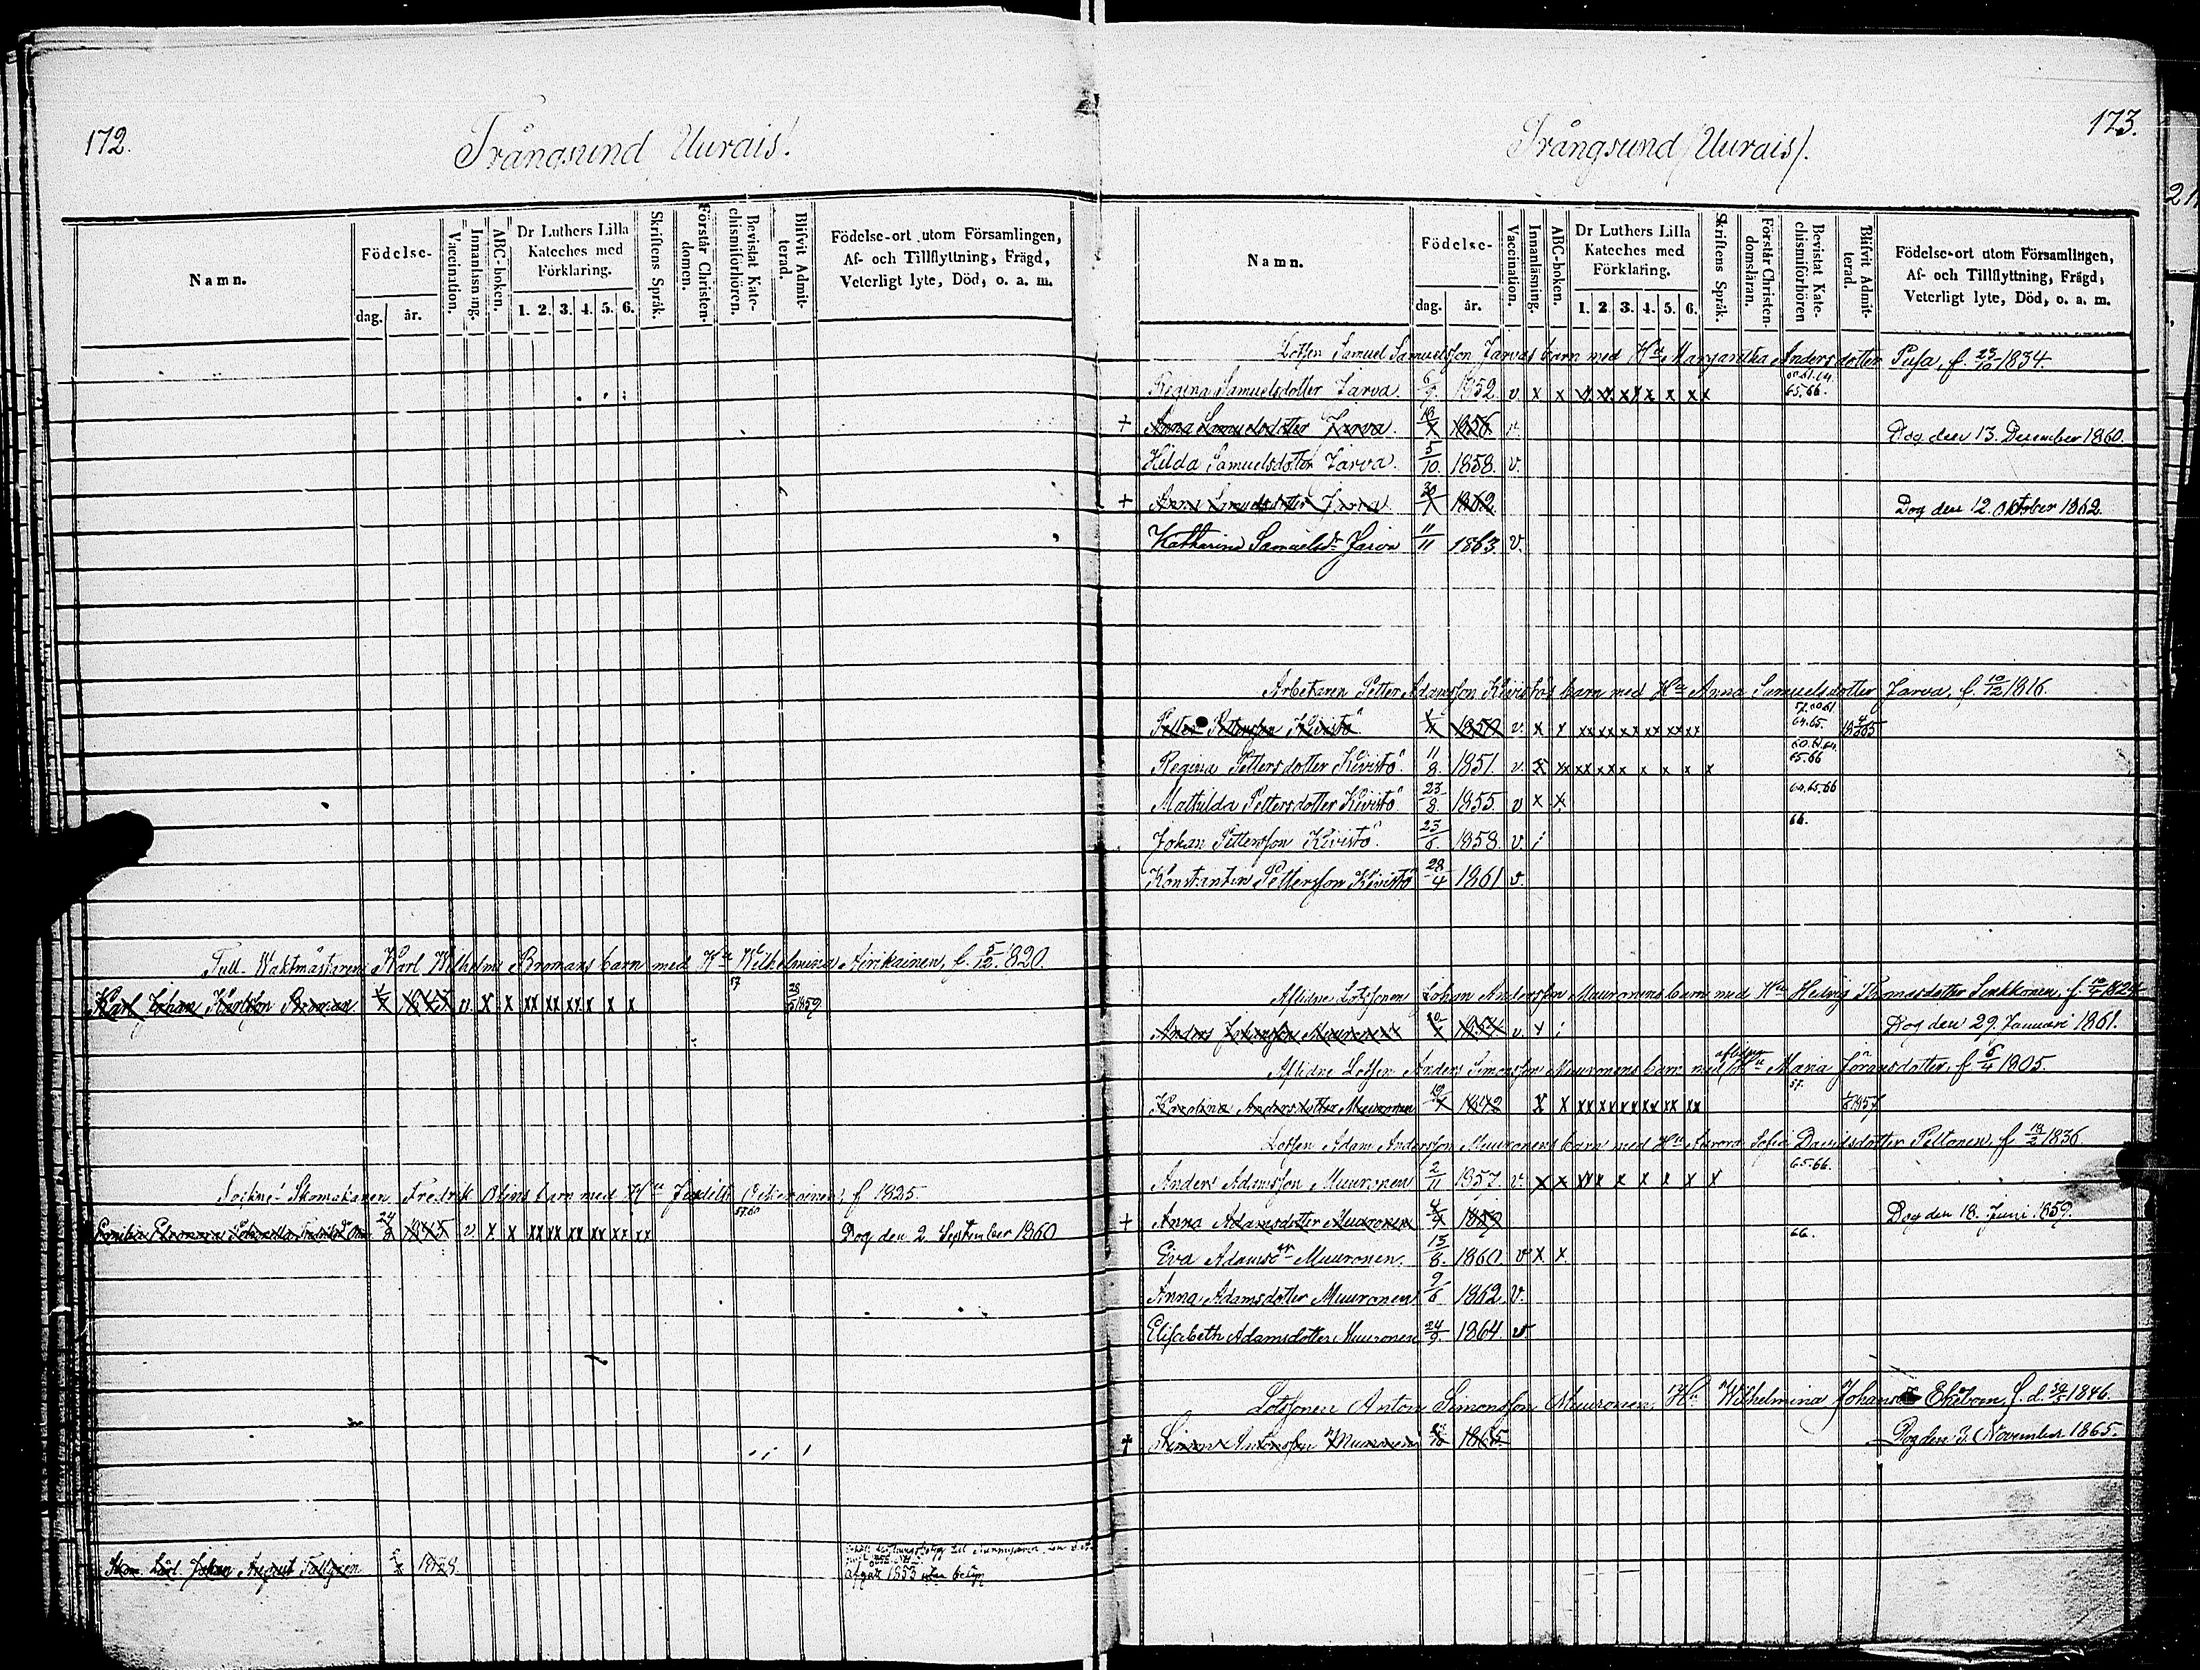 172.
Trångsund Uurais!
Namn.
Födelse-
dag. år.
Vaccination.
Innanläsning.
ABC-boken.
Dr Luthers Lilla
Kateches med
Förklaring.
1. 2. 3. 4. 5. 6.
Skriftens Språk.
Förstår Christen-
domen.
Bevistat Kate-
chismiförhören.
Blifvit Admit-
terad.
Födelse-ort utom Församlingen,
Af- och Tillflyttning, Frägd,
Veterligt lyte, Död, o. a. m.
Tull-Waktmästaren Karl Wilhelm Bromans barn med Hu Wilhelmina Airikainen, f. 5/12 1820.
Karl Johan Karlsson Broman v. x x xx xx xx x x x 57 28/5 1859
Skomakaren Fredrik Olins barn med Hu Judith f 1825.
Emilia Eleonora 24/8 1845 v. x x xx xx xx xx xx xx 57.60 Dog den 2 September 1860
Johan August Tallgren 1828
afgått 1853
173.
Trångsund (Uurais).
Namn.
Födelse-
dag. år.
Vaccination.
Innanläsning.
ABC-boken.
Dr Luthers Lilla
Kateches med
Förklaring.
1. 2. 3. 4. 5. 6.
Skriftens Språk.
Förstår Christen-
domsläran.
Bevistat Kate-
chismiförhören
Blifvit Admit-
terad.
Födelse-ort utom Församlingen,
Af- och Tillflyttning, Frägd,
Veterligt lyte, Död, o. a. m.
Lotsen Samuel Samuelsson Jarvas barn med Hu Margaretha Andersdotter Pusa, f. 1834.
Regina Samuelsdotter Jarva. 6/9. 1852. v x x x x x x x x x x 65.66.
+ Anna Samuelsdotter Jarva. 1856. v. Dog den 13. December 1860.
Hilda Samuelsdotter Jarva. 5/10. 1858. v.
+ Anna Samuelsdotter Jarva 30/1 1862. Dog den 12. Oktober 1862.
Katharina Samuelsdr Jarva 11/11 1863. v.
Arbetaren Petter Adamsson Kivistös barn med Hu Anna Samuelsdotter Jarva, f. 10/12 1816.
Petter Pettersson Kivistö. 1850 v. x x xx xx xx xx xx xx 64.65. 1865
Regina Pettersdotter Kivistö. 11/8. 1851. v. x xx xx xx x x x x x 60.61.64. 65.66
Mathilda Pettersdotter Kivistö. 23/8. 1855 v x x. 64.65.66
Johan Pettersson Kivistö. 23/6. 1858. v. i 66.
Konstantin Pettersson Kivistö 28/4 1861 v.
Aflidne Lotsen Johan Andersson Muuronens barn med Hu Hedvig Thomasdotter Sinkkonen, f. 1824
Anders Johansson Muuronen 1854 v. x i Dog den 29. Januari 1861.
Aflidne Lotsen Anders Simonsson Muuronens barn med aflidna Hu Maria Göransdotter, f. 6/4 1805.
Karolina Andersdotter Muuronen 1842 x x xx xx xx xx xx xx 57. 1857
Lotsen Adam Andersson Muuronens barn med Hu Aurora Sofia Davidsdotter Peltonen, f 18/2 1836
Anders Adamsson Muuronen 2/11 1857. v. x x xx x x x x x x 65.66.
+ Anna Adamsdotter Muuronen 1859 Dog den 18. Juni 1859.
Eva Adamsdr Muuronen. 13/8. 1860. v x x. 66.
Anna Adamsdotter Muuronen 9/6 1862. v.
Elisabeth Adamsdotter Muuronen 24/9 1864. v
Lotsonen Anton Simonsson Muuronen, Hu Wilhelmina Johansdr Ekebom, f. d. 1846.
† Simon Antonsson Muuronen 1865 Dog den 3. November 1865.